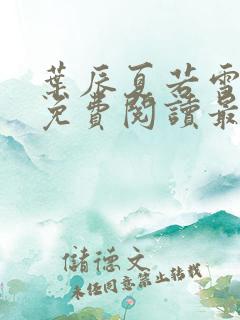 葉辰夏若雪
免費閱讀最
儲德文
未經同意禁止轉載